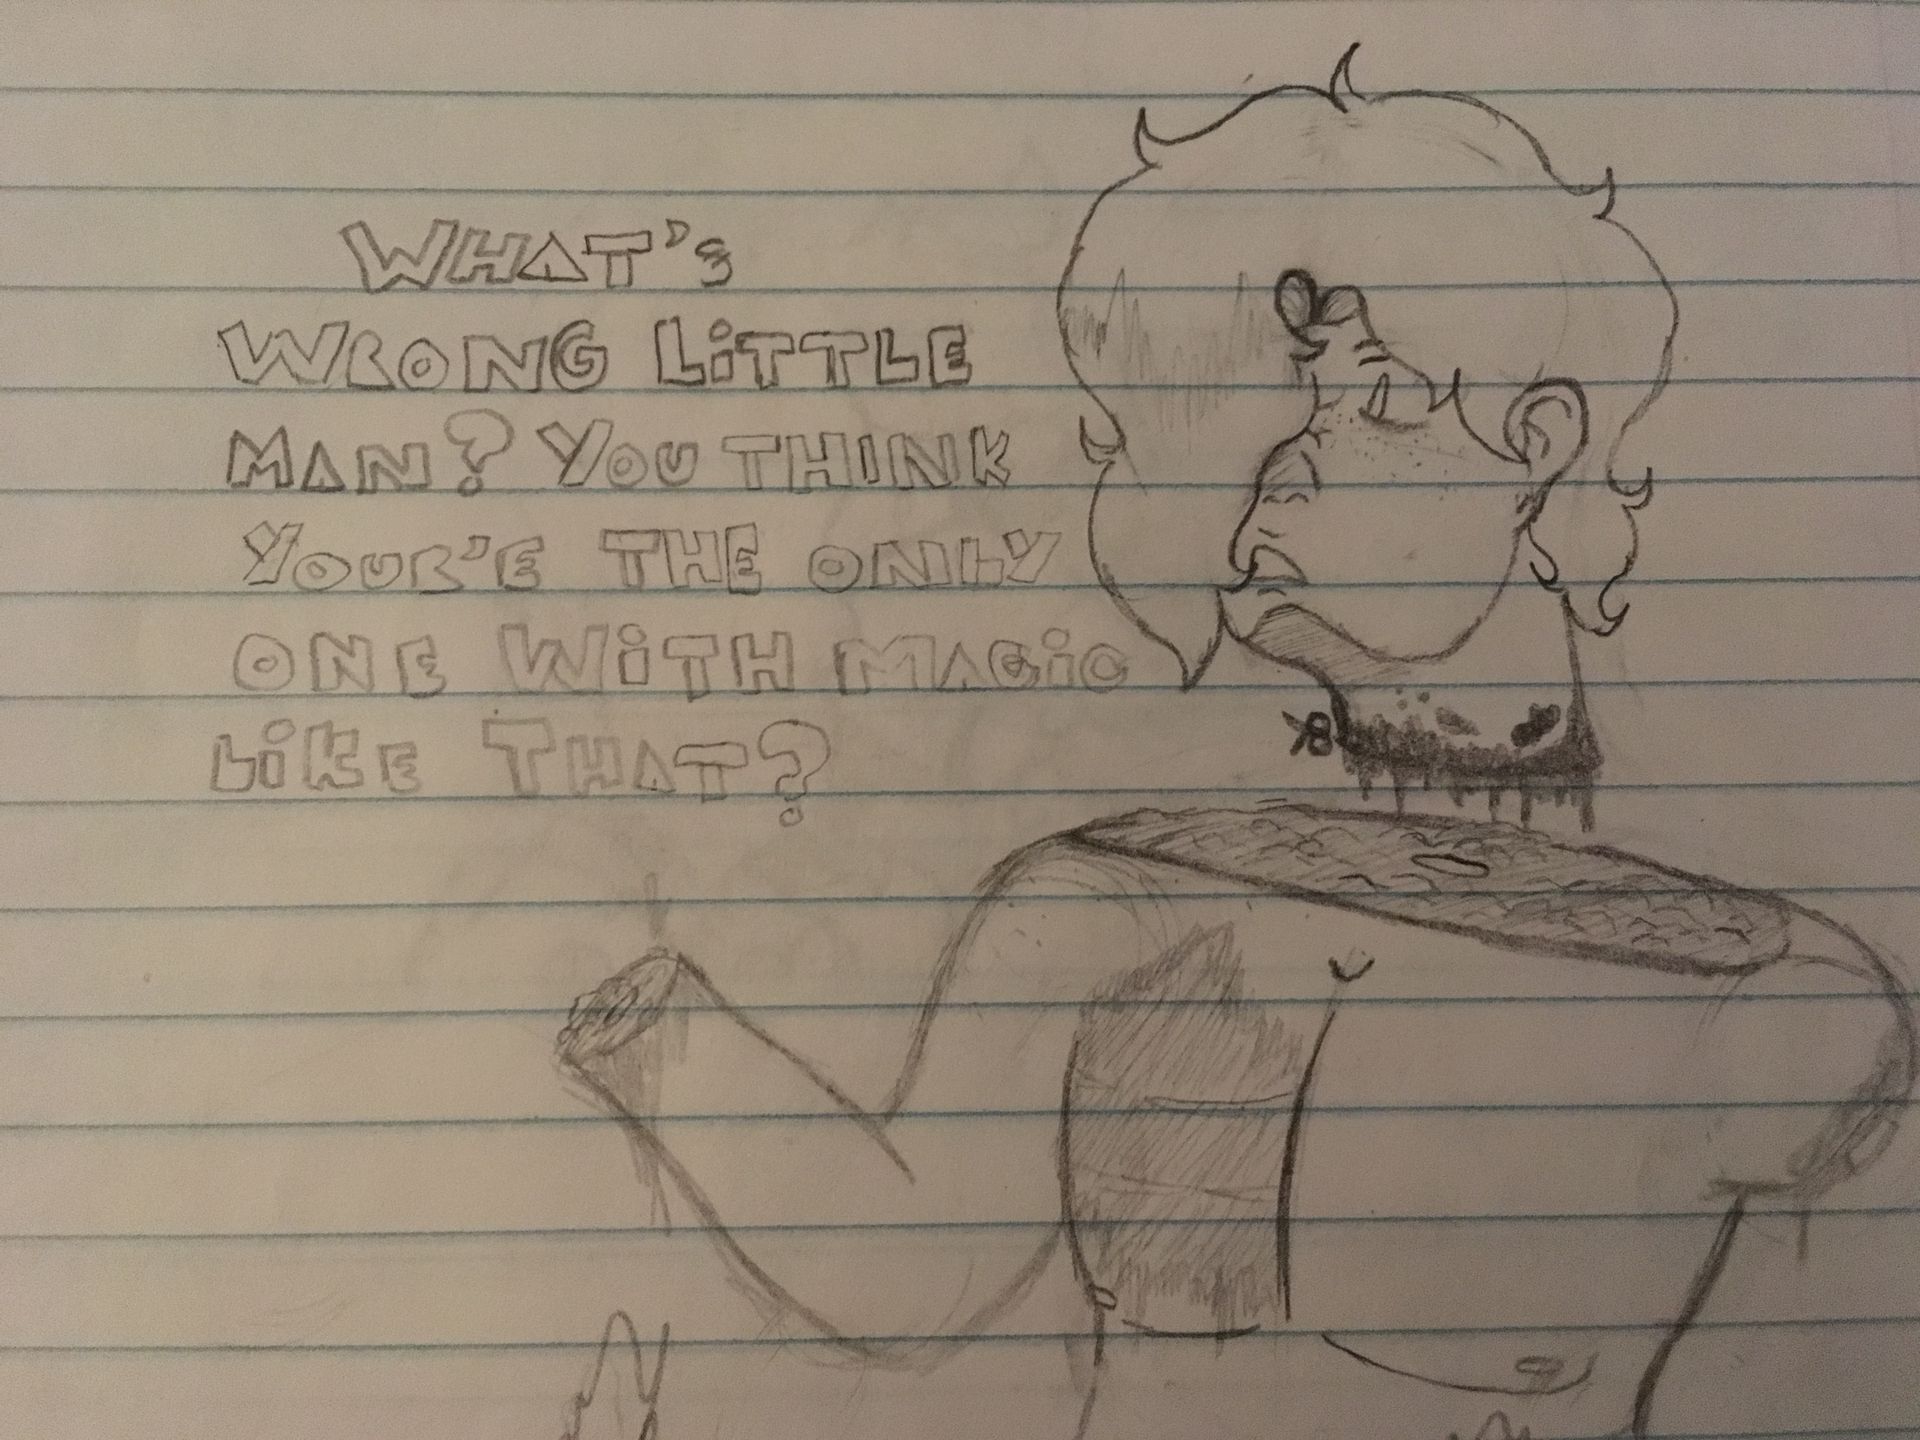 WHAT'S
WRONG LiTTLE
MAN? YOU THINK
YOUR'E THE ONLY
ONE WiTH MAGiC
LiKE THAT?